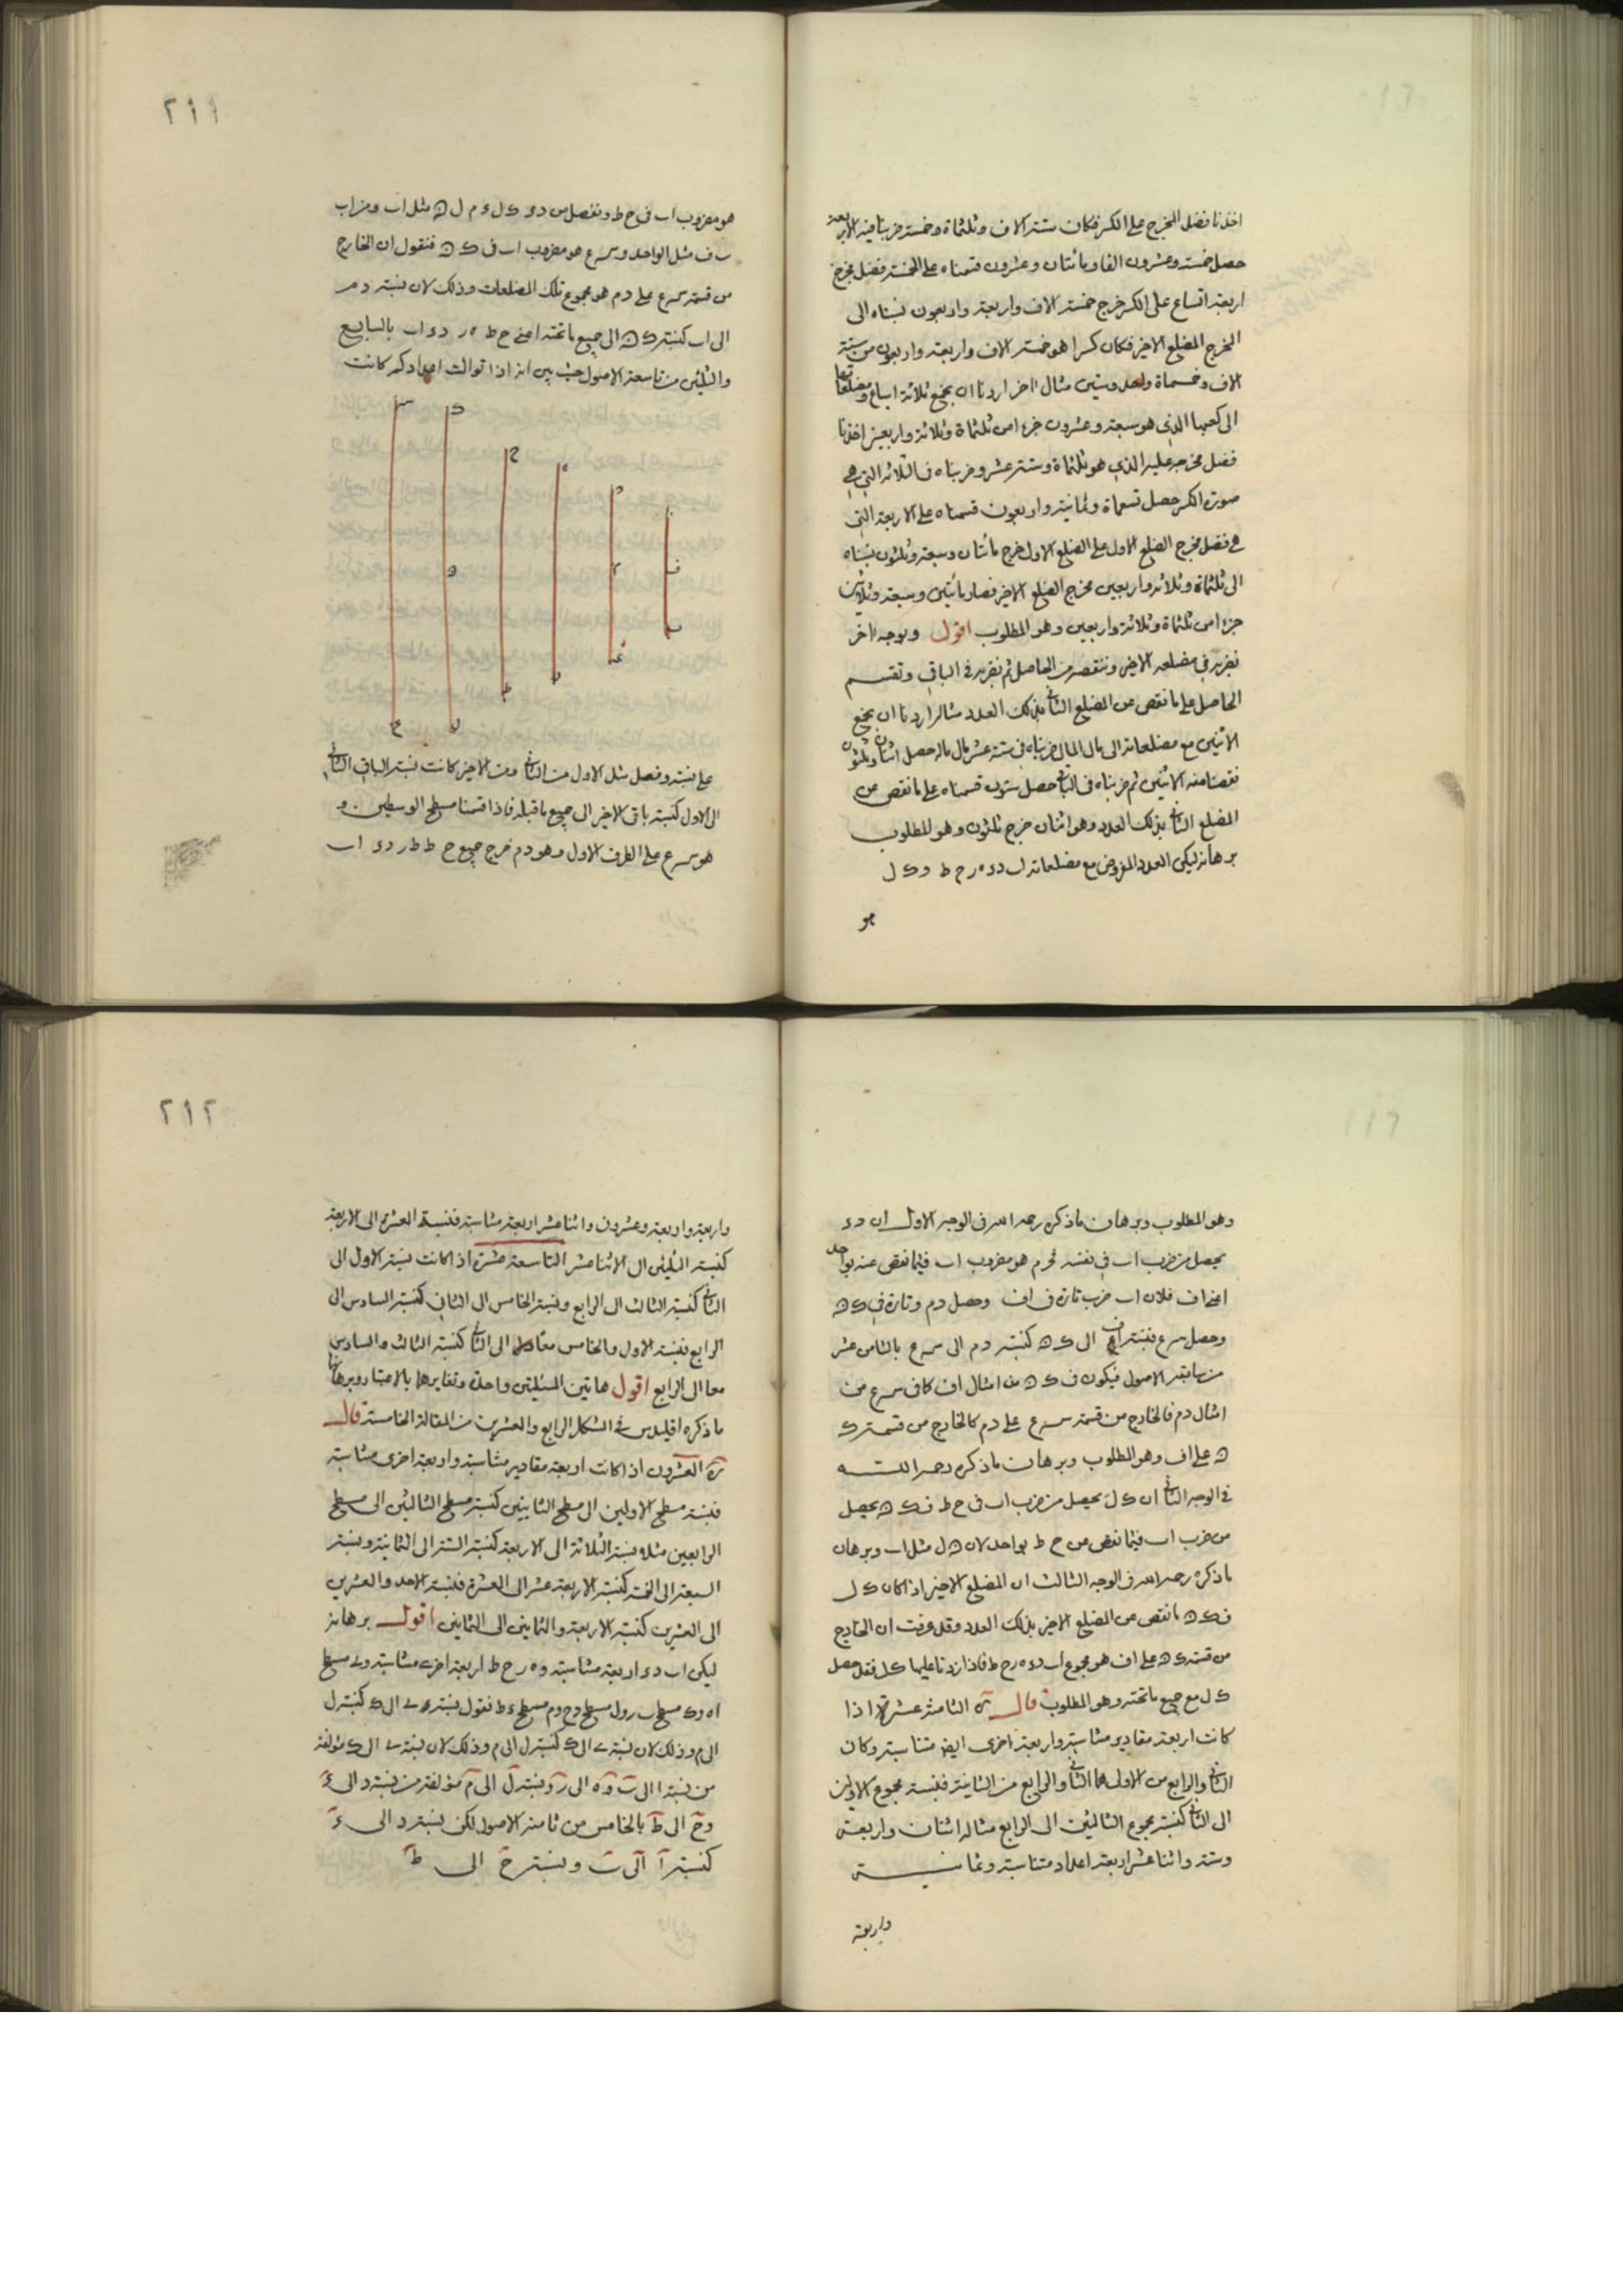 اخذنا فضل المخرج على الكسر فكان ستة الاف وثلثماة وخمسة ضربنا فيه الاربعة
حصل خمسة وعشرون الفا ومائتان وعشرون قسمناه على الخمسة فضل مخرج
اربعة اتساع على الكسر خرج خمسة الاف واربعة واربعون نسبناه الى
المخرج المضلع الاخير فكان كسرا هو خمسة الاف واربعة واربعون من ستة
الاف وخمسماة واحد وستين مثال اخر اردنا ان نجمع ثلاثة اسباع ومضلعاتها
الى كعبها الذي هو سبعة وعشرون جزءا من ثلثماة وثلاثة واربعين اخذنا
فضل مخرجه عليه الذي هو ثلثماة وستة عشر وضربناه في الثلاثة التي هي
صورة الكسر حصل تسعماة وثمانية واربعون قسمناه على الاربعة التي
هي فضل مخرج الضلع الاول على الضلع الاول خرج مائتان وسبعة وثلثون نسبناه
الى ثلثماة وثلاثة واربعين مخرج الضلع الاخير فصار مائتين وسبعة وثلاثين
جزءا من ثلثماة وثلاثة واربعين وهو المطلوب اقول وبوجه اخر
نضربه في مضلعه الاخير وننقصه من الحاصل ثم نضربه في الباقي ونقسم
الحاصل على ما نقص من المضلع الثاني بذلك العدد مثاله اردنا ان نجمع
الاثنين مع مضلعاته الى مال المال ضربناه في ستة عشر مال ماله حصل اثنان وثلثون
نقصنا منه الاثنين ثم ضربناه في الباقي حصل ستون قسمناه على ما نقص من
المضلع الثاني بذلك العدد وهو اثنان خرج ثلثون وهو المطلوب
برهانه ليكن العدد المفروض مع مضلعاته اب دء ه ر ح ط و ك ل
هو
٢١١
هو مضروب اب في ح ط ونفصل من دء ك ل ء م ل ن مثل اب ومن اب
ب ف مثل الواحد و س ع هو مضروب اب في ك ن فنقول ان الخارج
من قسمة س ع على د م هو مجموع تلك المضلعات وذلك لان نسبة د م
الى اب كنسبة ك ن الى جميع ما تحته اعني ح ط ه ر دء اب بالسابع
والثلثين من تاسعة الاصول حيث بين انه اذا توالت اعداد كم كانت
على نسبة وفصل مثل الاول من الثاني ومن الاخير كانت نسبة الباقي الثاني
الى الاول كنسبة باقي الاخير الى جميع ما قبله فاذا قسمنا مسطح الوسطين و
هو س ع على الطرف الاول وهو د م خرج جميع ح ط ط ر دء اب
وهو المطلوب وبرهان ما ذكره رحمه الله في الوجه الاول ان دء
يحصل من ضرب اب في نفسه فدم هو مضروب اب فيما نقص عنه بواحد
اعني اف فلان اب ضرب تارة في اف وحصل د م وتارة في ك ن
وحصل س ع فنسبة اف الى ك ن كنسبة د م الى س ع بالثامن عشر
من سابعة الاصول فيكون في ك ن من امثال اف كما في س ع من
امثال د م فالخارج من قسمة س ع على د م كالخارج من قسمة ك
ن على اف وهو المطلوب وبرهان ما ذكره رحمه الله
في الوجه الثاني ان ك ل يحصل من ضرب اب في ح ط فـ ك ن يحصل
من ضرب اب فيما نقص من ح ط بواحد لان ن ل مثل اب وبرهان
ما ذكره رحمه الله في الوجه الثالث ان المضلع الاخير اذا كان ك ل
فـ ك ن ما نقص من المضلع الاخير بذلك العدد وقد عرفت ان الخارج
من قسمة ك ن على اف هو مجموع اب دء ه ر ح ط فاذا زدنا عليها ك ل فقد حصل
ك ل مع جميع ما تحته وهو المطلوب قال ره الثامنة عشرة اذا
كانت اربعة مقادير متناسبة واربعة اخرى ايضا متناسبة وكان
الثاني والرابع من الاولى هما الثاني والرابع من الثانية فنسبة مجموع الاولين
الى الثاني كنسبة مجموع الثالثين الى الرابع مثاله اثنان واربعة
وستة واثنا عشر اربعة اعداد متناسبة وثمانية
واربعة
٢١٢
واربعة واربعة وعشرون واثنا عشر اربعة متناسبة فنسبة العشرة الى الاربعة
كنسبة الثلثين الى الاثنا عشر التاسعة عشرة اذا كانت نسبة الاول الى
الثاني كنسبة الثالث الى الرابع ونسبة الخامس الى الثاني كنسبة السادس الى
الرابع فنسبة الاول والخامس معا الى الثاني كنسبة الثالث والسادس
معا الى الرابع اقول هاتين المسئلتين واحدة وتغايرهما بالاعتبار وبرهانها
ما ذكره اقليدس في الشكل الرابع والعشرين من المقالة الخامسة قال
ره العشرون اذا كانت اربعة مقادير متناسبة واربعة اخرى متناسبة
فنسبة مسطح الاولين الى مسطح الثانيين كنسبة مسطح الثالثين الى مسطح
الرابعين مثلا نسبة الثلاثة الى الاربعة كنسبة الستة الى الثمانية ونسبة
السبعة الى الخمسة كنسبة الاربعة عشر الى العشرة فنسبة الاحد والعشرين
الى العشرين كنسبة الاربعة والثمانين الى الثمانين اقول برهانه
ليكن اب دء اربعة متناسبة و ه ر ح ط اربعة اخرى متناسبة و ى مسطح
ا ه و ك مسطح ب ر و ل مسطح د ح و م مسطح ء ط نقول نسبة ى الى ك كنسبة ل
الى م وذلك لان نسبة ى الى ك كنسبة ل الى م وذلك لان نسبة ى الى ك مؤلفة
من نسبة ا الى ب و ه الى ر ونسبة ل الى م مؤلفة من نسبة د الى ء
و ح الى ط بالخامس من ثامنة الاصول لكن نسبة د الى ء
كنسبة ا الى ب ونسبة ح الى ط